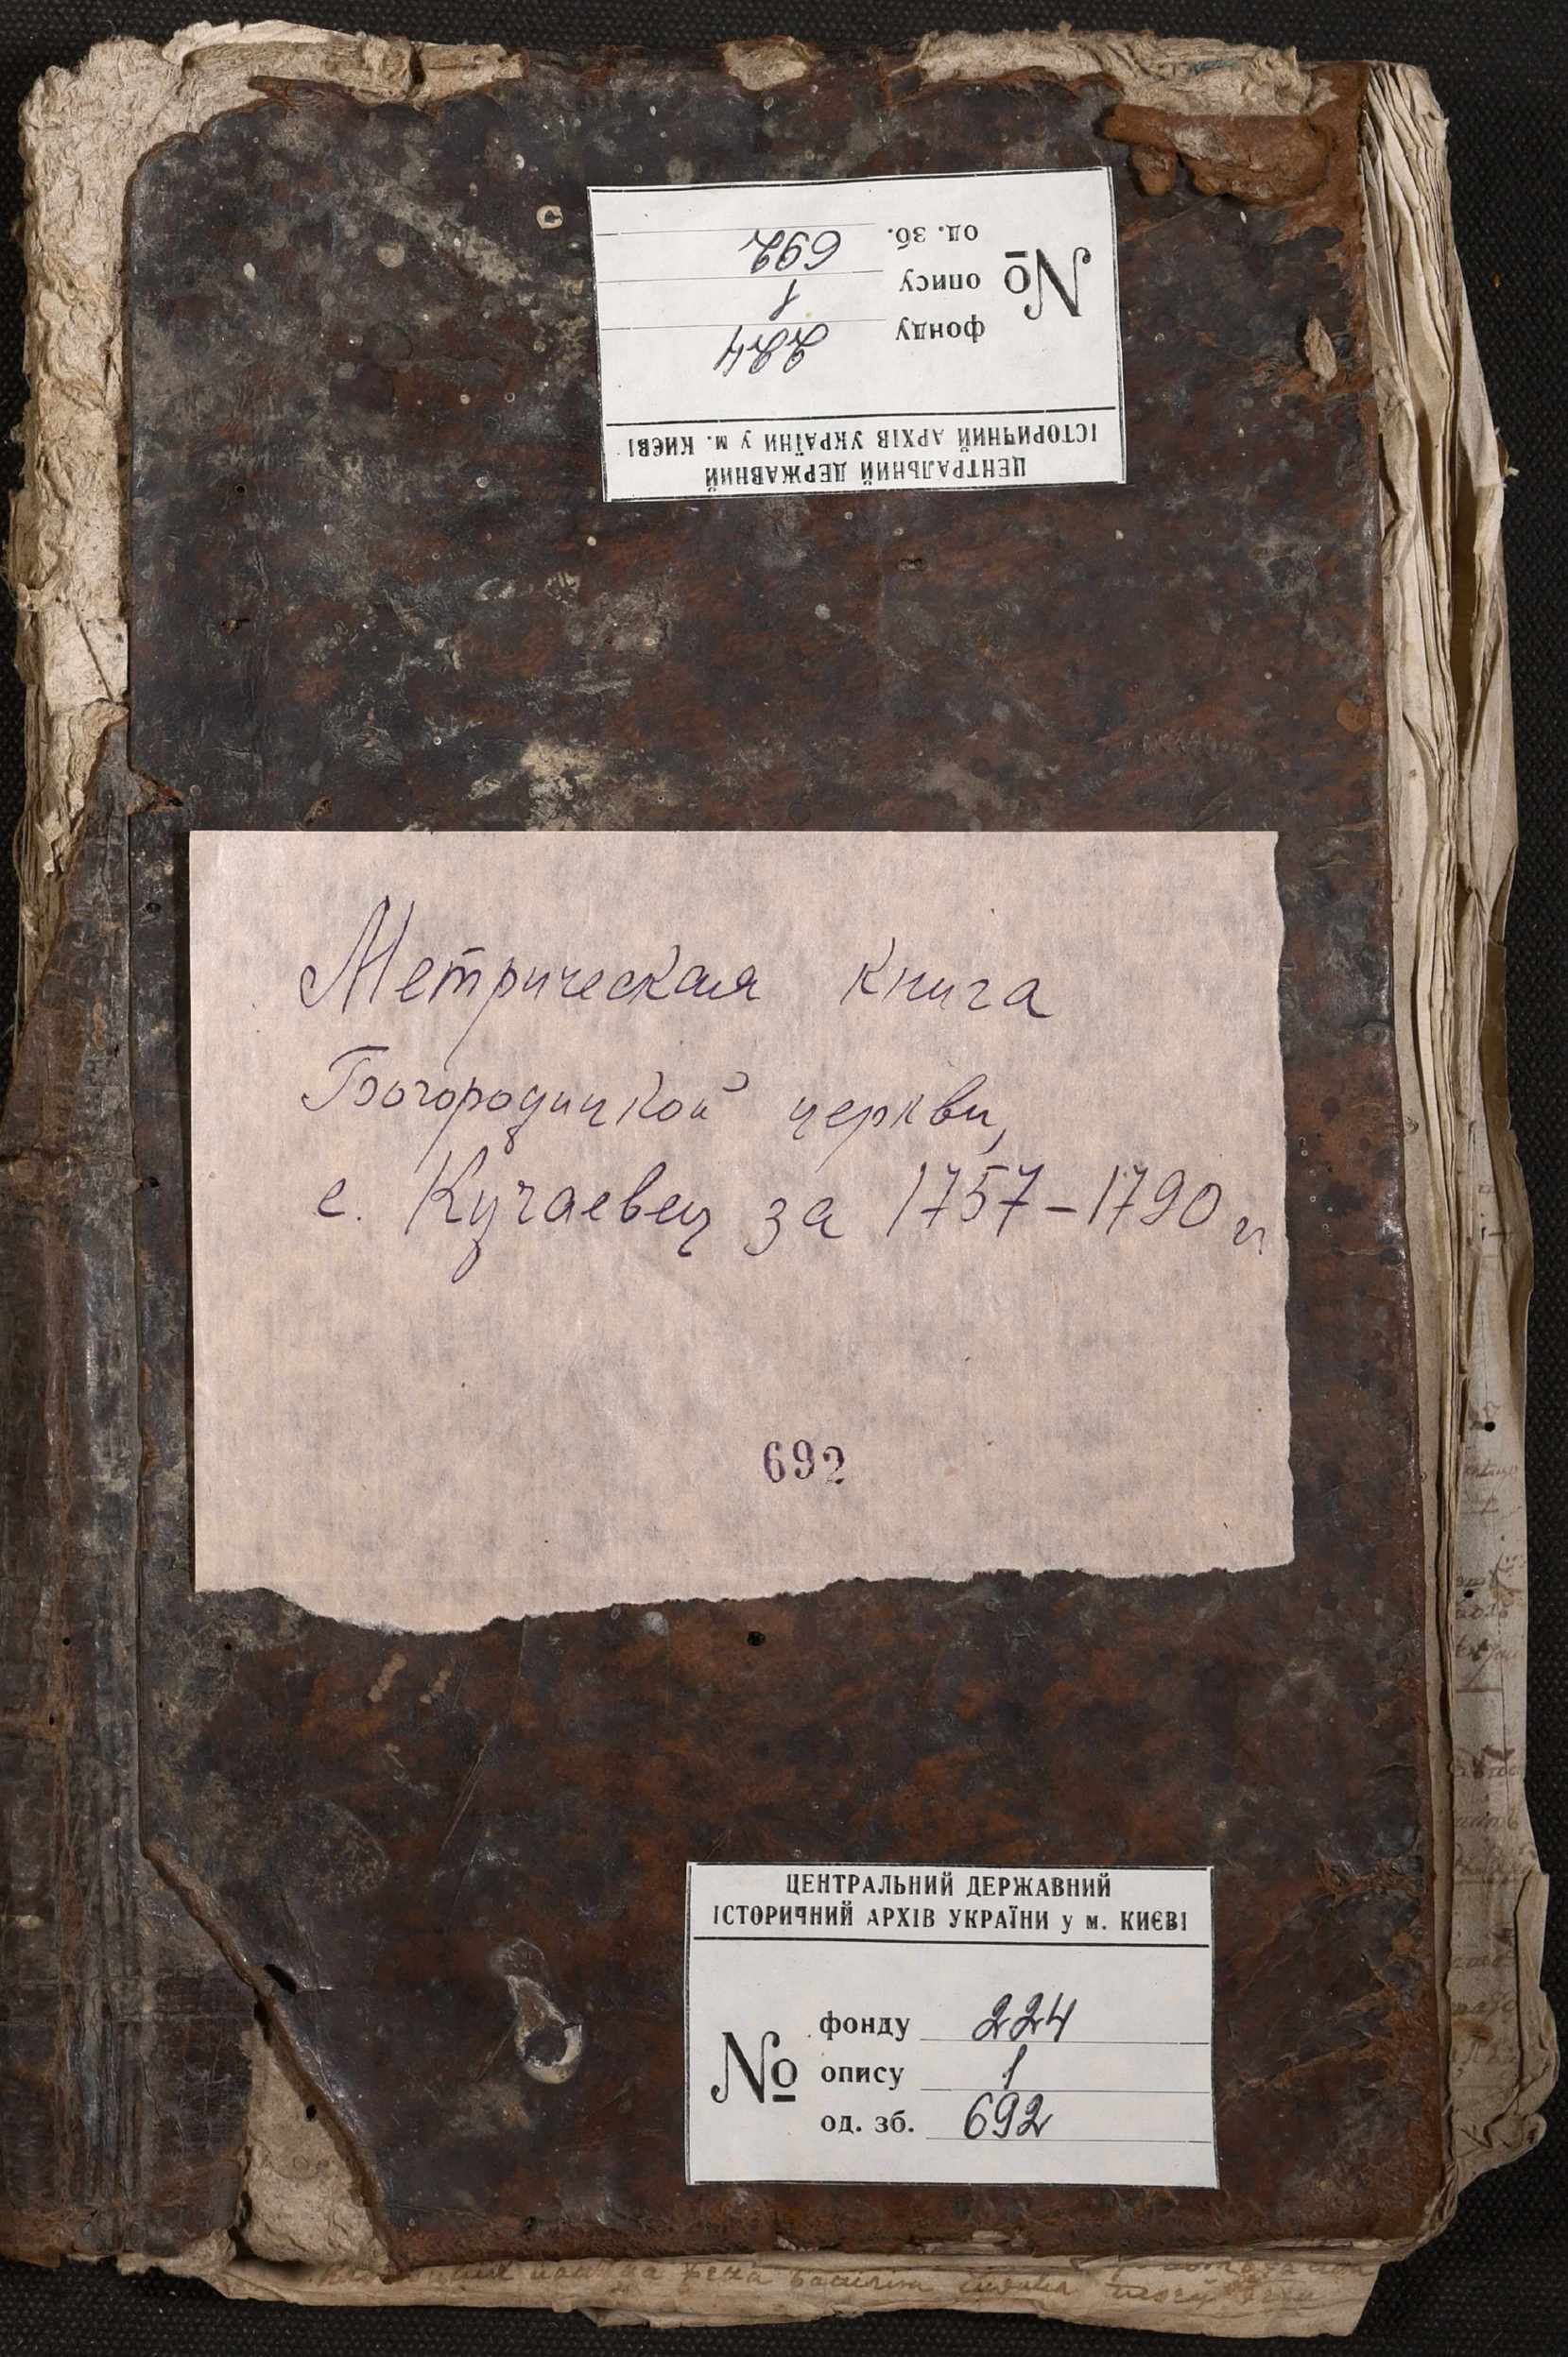 од. зб. 692
№ опису 1
фонду 224
ІСТОРИЧНИЙ АРХІВ УКРАЇНИ у м. КИЄВІ
ЦЕНТРАЛЬНИЙ ДЕРЖАВНИЙ
Метрическая книга
Богородицкой церкви,
с. Кучаевец за 1757-1790 гг
692
ЦЕНТРАЛЬНИЙ ДЕРЖАВНИЙ
ІСТОРИЧНИЙ АРХІВ УКРАЇНИ у м. КИЄВІ
фонду 224
№ опису 1
од. зб. 692